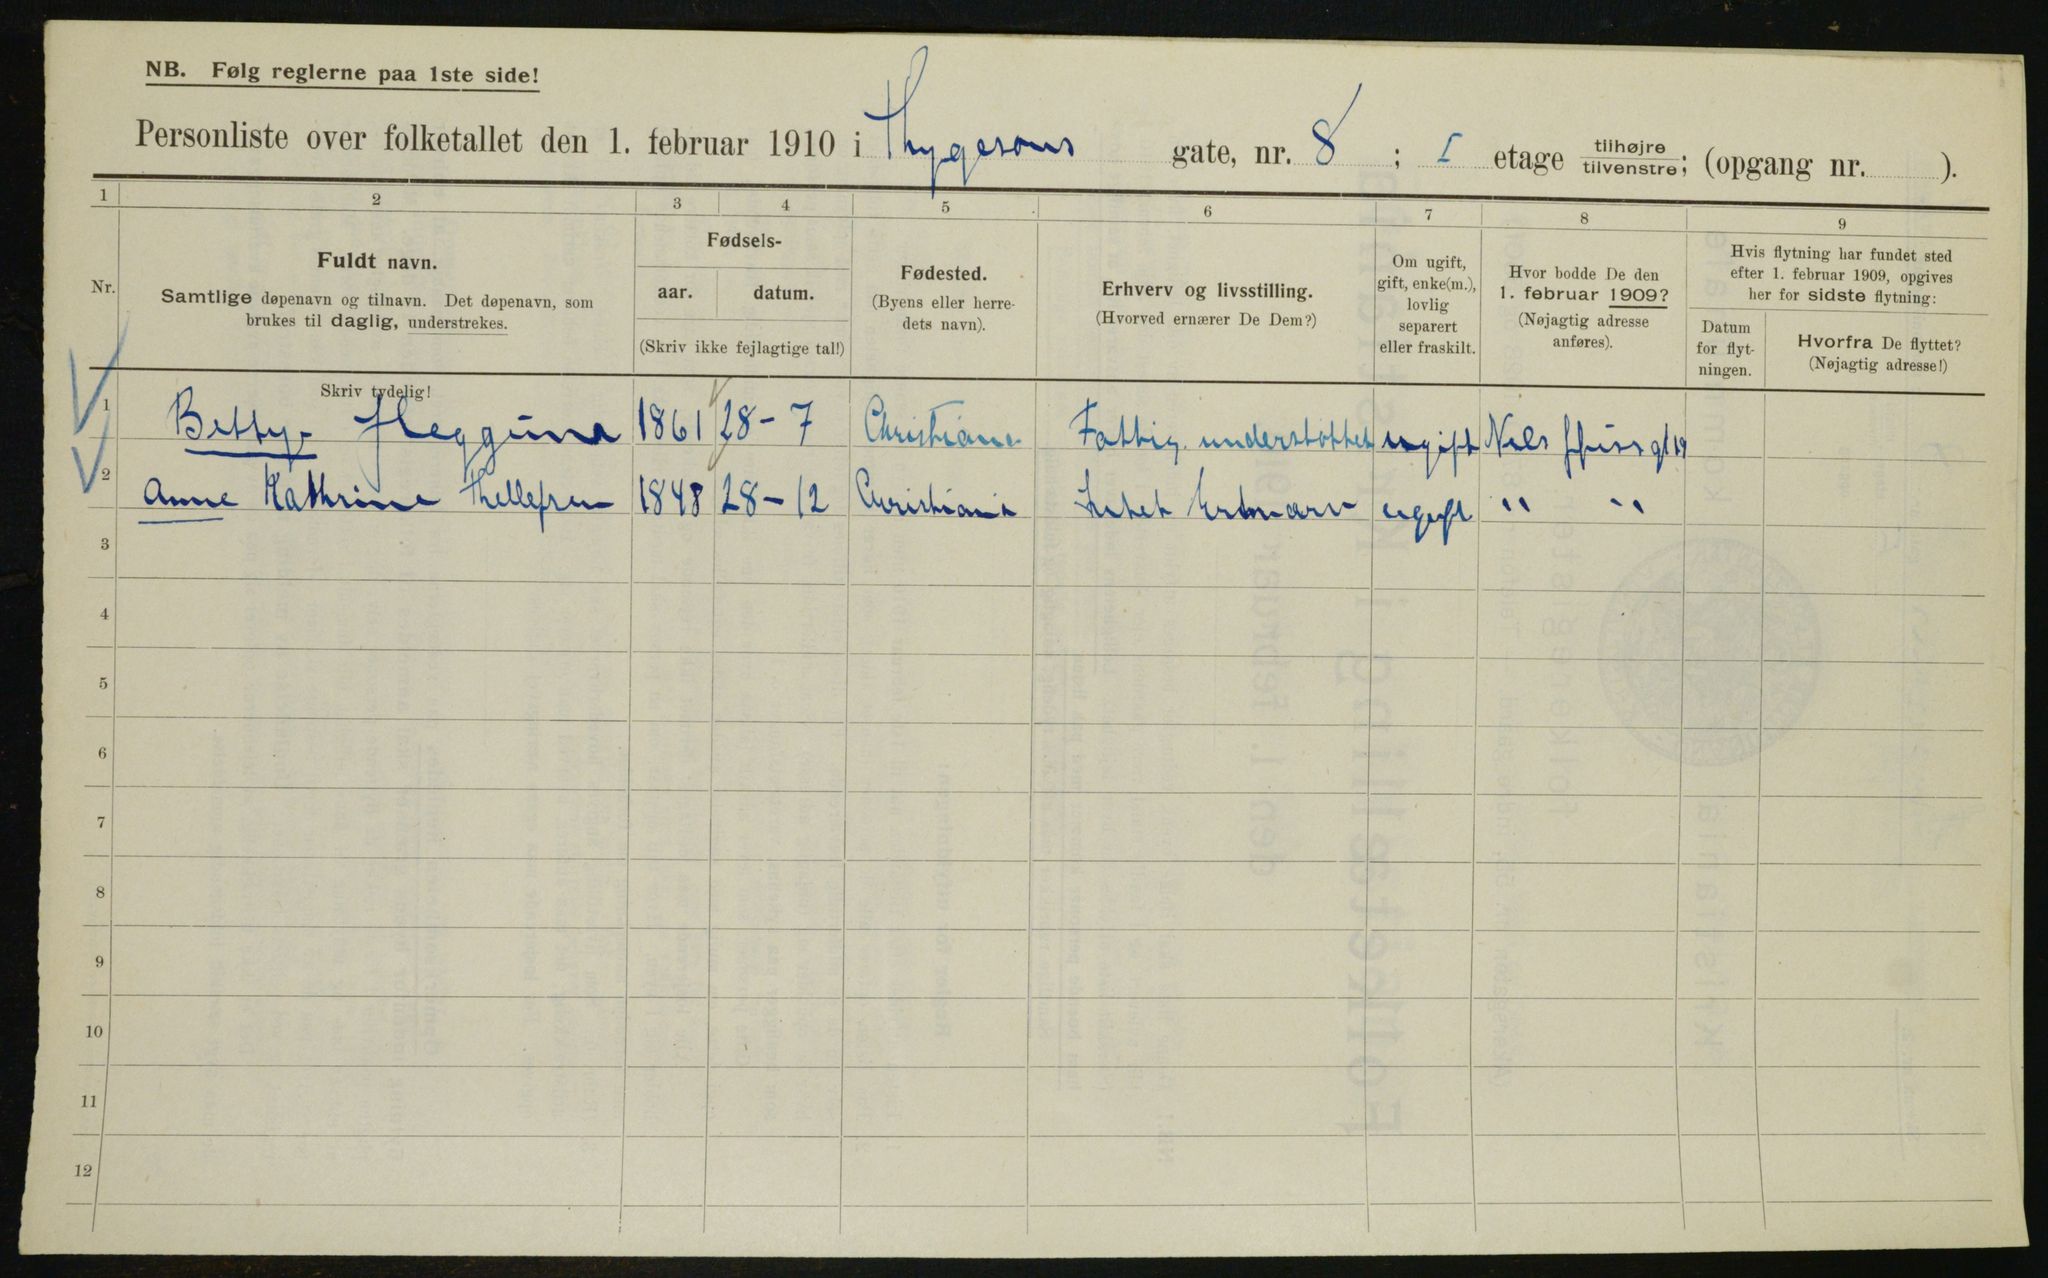 NB. Følg reglerne paa 1ste side!
Personliste over folketallet den 1. februar 1910 i Thygesons gate, nr. 8 ; I etage tilhøjre tilvenstre; (opgang nr. ).
1 2 3 4 5 6 7 8 9
Nr.
Fuldt navn.
Samtlige døpenavn og tilnavn. Det døpenavn, som
brukes til daglig, understrekes.
Skriv tydelig!
Fødsels-
aar. datum.
(Skriv ikke fejlagtige tal!)
Fødested.
(Byens eller herre-
dets navn).
Erhverv og livsstilling.
(Hvorved ernærer De Dem?)
Om ugift,
gift, enke(m.),
lovlig
separert
eller fraskilt.
Hvor bodde De den
1. februar 1909?
(Nøjagtig adresse
anføres).
Hvis flytning har fundet sted
efter 1. februar 1909, opgives
her for sidste flytning:
Datum
for flyt-
ningen.
Hvorfra De flyttet?
(Nøjagtig adresse!)
1 Betty 1861 28-7 Christiania Fattig understøttet ugift Nils gt 19
2 Anne Kathrine Thellefsen 1848 28-12 Christiania Intet Erhværv ugift " "
3
4
5
6
7
8
9
10
11
12